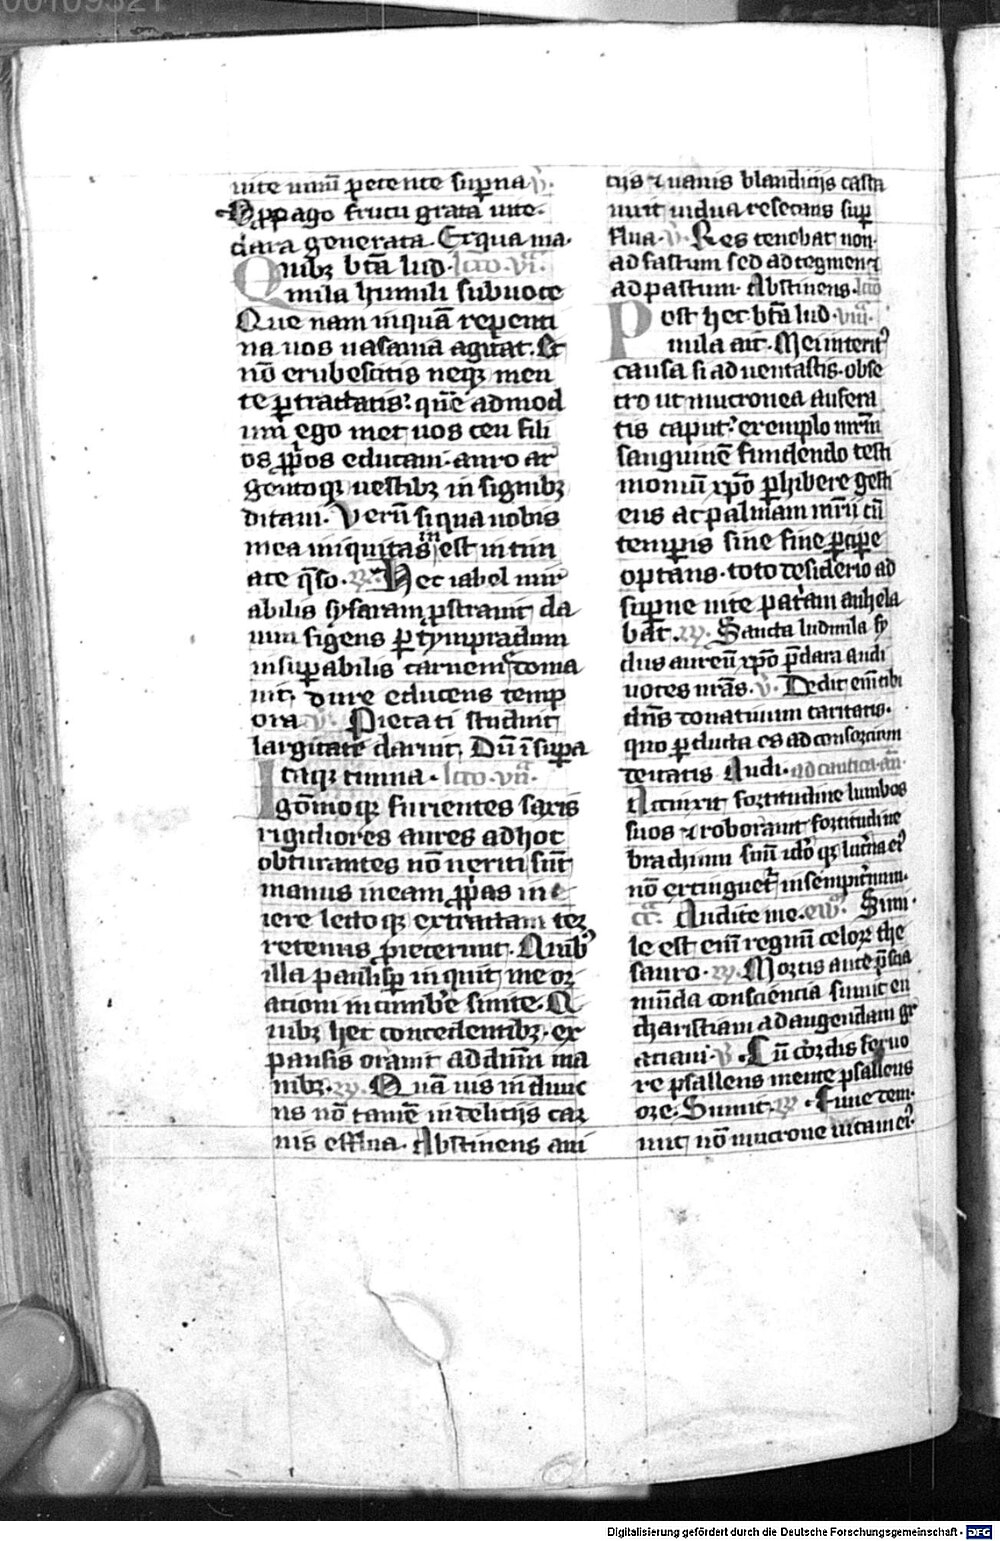 uite unum petente superna v̄.
Propago fructu grata uite.
clara generata. Ex qua ma.
Quibꝫ bt̄a lud. lc̄o. vi.
mila humili subuoce
Que nam inquā repenti
na uos uasania agitat. Et
nō erubescitis neqꝫ men
te ꝑtractatis. quē admod
um ego met uos ceu fili
os ꝓpos educaui. auro ar
gentoqꝫ uestibꝫ in signibꝫ
ditaui. Verū si qua uobis
mea iniquitas in est in tim
ate q̄so. R̄. Hec iahel mir
abilis sysaram ꝓstrauit da
uum figens ꝑ tympradum
insuꝑabilis carnem doma
uit, dure educens temp
ora v̄. Pietati studuit
largitate claruit, Dū ī suꝑa
Itaqꝫ turma. lc̄o. vii.
gōmoqꝫ furientes saxis
rigidiores aures ad hoc
obturantes nō ueriti sūt
manus in eam ꝓpas in
icere lectoqꝫ extractam
retenus proiecerunt. Quibꝫ
illa paulisꝑ inquit me or
ationi incumbe sinite. Q
uibꝫ hec concedentibꝫ. ex
pansis orauit ad dn̄m ma
nibꝫ. R̄. Quā uis in
nō tamē in delicijs car
nis efflua. Abstinens aui
cijs ⁊ uanis blandicijs casta
uixit uidua resecans suꝑ
flua. v̄. Res tenebat non.
ad fastum sed ad tegmen ⁊
ad pastum. Abstinens. lc̄o
Post hec bt̄a lud. viii.
mila ait. Mei interit
causa si ad uentastis. obse
cro ut mucrone a ufera
tis caput. exemplo mr̄m
sanguinē fundendo testi
moniū xp̄o ꝑhibere gesti
ens ac palmam mr̄ij cū
temꝑis sine fine ꝑciꝑe
optans. toto desiderio ad
suꝑne uite patriam anhela
bat. R̄. Sancta ludmila sy
dus aureū xp̄o ꝑclara audi
uoces nr̄as. v̄. Dedit enī tibi
dn̄s donatiuum caritatis.
quo ꝑducta es ad consorcium
deitatis. Audi. ad cantica. an̄.
Accinxit fortitudine lumbos
suos ⁊ roborauit fortitudine
brachium suū ido qꝫ lucerna eiꝰ
nō extinguet in sempiternum.
cc̄. Audite me. ew̄. Simi.
le est enī regnū celoꝝ the
sauro. R̄. Mortis ante p̄scia
mūda consciencia sumit eu
charistiam ad augendam gr
aciam. v̄. Cū cordis feruo
re psallens mente psallens
ore. Sumit. R̄. Fune dem.
nūc nō mucrone uitam eiꝰ.
Digitalisierung gefördert durch die Deutsche Forschungsgemeinschaft - DFG